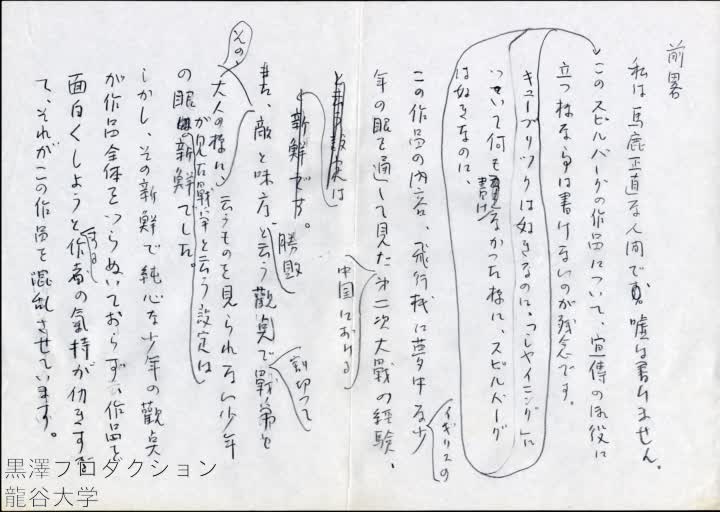 前畧
私は馬鹿正直な人間で嘘は書けません。
このスピルバーグの作品について、宣傳のお役に
立つ様な事は書けないのが残念です。
キューブリックは好きなのに、「シャイニング」に
ついて何も書けなかった様に、スピルバーグ
は好きなのに、
この作品の内容、飛行機に夢中な少
イギリスの
年の眼を通して見た第二次大戰の経験、
中国における
と云う設定は
新鮮です。
敵と味方、と云う觀奌で戰争と
勝敗
割切って
その
大人の様に、云うものを見られない少年
の眼が見た戰争と云う設定は
新鮮でした。
しかし、その新鮮で純心な少年の觀奌
が作品全体をつらぬいておらず、作品を
面白くしようと作者の氣持が仂きすぎ
する
て、それがこの作品を混乱させています。
黒澤プロダクション
龍谷大学